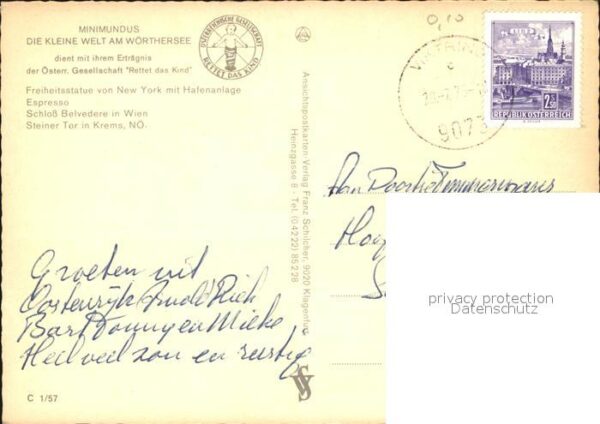 MINIMUNDUS
DIE KLEINE WELT AM WÖRTHERSEE
dient mit ihrem Erträgnis
der Österr. Gesellschaft "Rettet das Kind"
ÖSTERREICHISCHE GESELLSCHAFT
RETTET DAS KIND
Freiheitsstatue von New York mit Hafenanlage
Espresso
Schloß Belvedere in Wien
Steiner Tor in Krems, NÖ.
Ansichtspostkarten-Verlag Franz Schilcher, 9020 Klagenfurt
Heinzgasse 8 - Tel. (04222) 85 2 38
0,10
9073
LINZ
2.50
REPUBLIK ÖSTERREICH
Groeten uit
Oostenrijk
Bart Tonny en Mieke
Heil veel zon en
privacy protection
Datenschutz
C 1/57